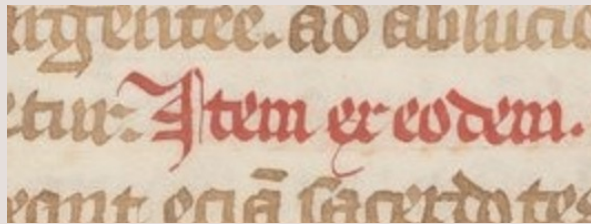 argentee. ad ablucio
etur. Item ex eodem.
eant eciā sacerdotes